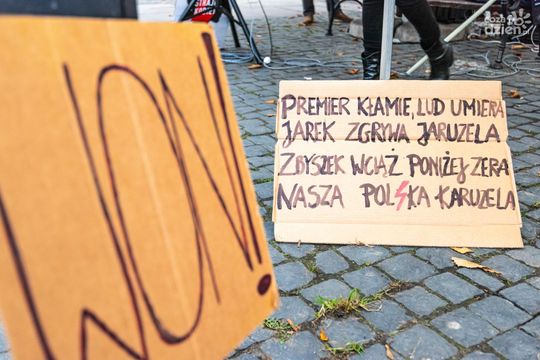 STRAJK
KOBIET
co za dzień
WON!
PREMIER KŁAMIE, LUD UMIERA
JAREK ZGRYWA JARUZELA
ZBYSZEK WCIĄŻ PONIŻEJ ZERA
NASZA POLSKA KARUZELA